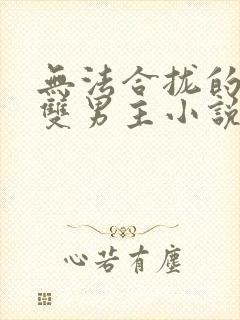 無法合拢的
雙男主小説
心若有塵